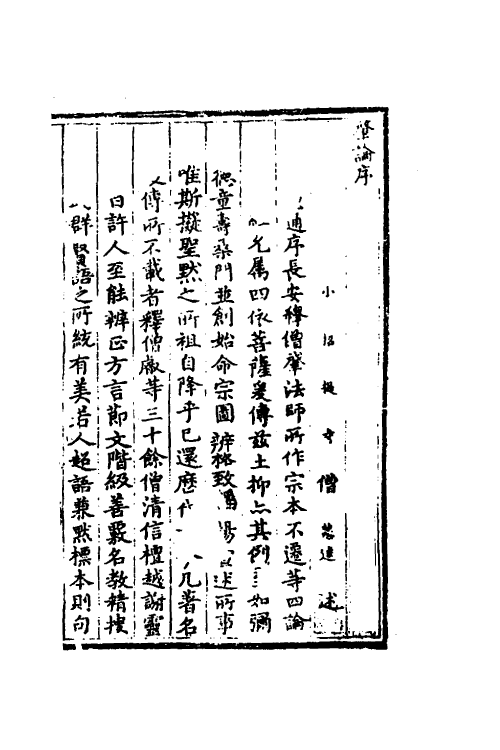 肇論序
小招提寺僧慧達述
通序長安釋僧肇法師所作宗本不遷等四論
允屬四依菩薩爰傳茲土抑亦其例 如彌
童壽桑門並創始命宗圖辨格致 揚 述所事
唯斯擬聖默之所祖自降乎已還歷代 凡著名
僧傳所不載者釋僧叡等三十餘僧清信檀越謝靈
曰許人至能辨正方言節文階級善覈名教精搜
群賢語之所統有美若人超語兼默標本則句